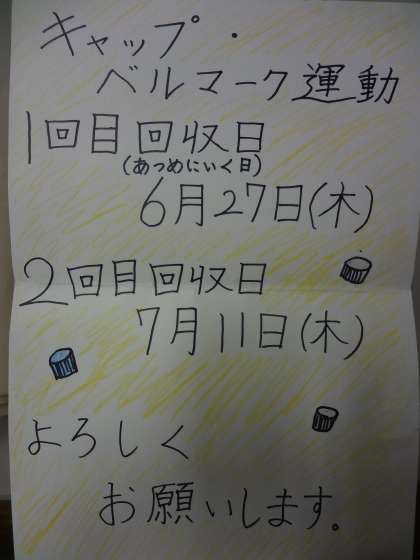 キャップ・
ベルマーク運動
1回目回収日
(あつめにいく日)
6月27日(木)
2回目回収日
7月11日(木)
よろしく
お願いします。